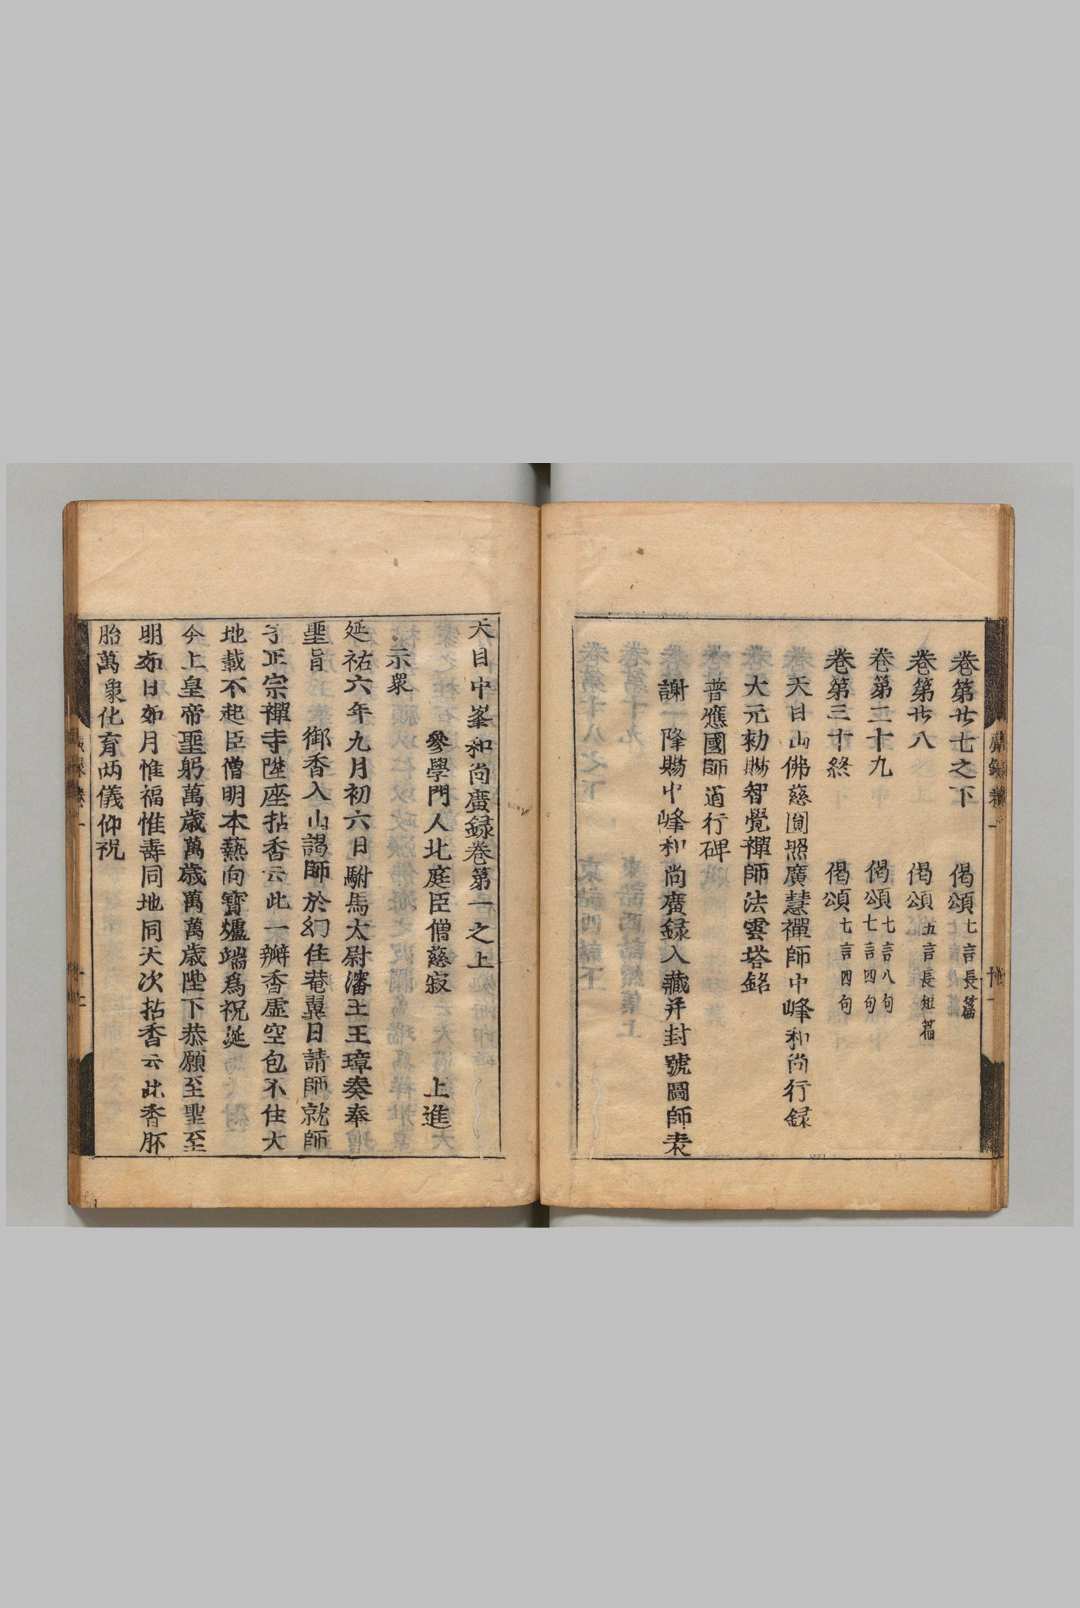 卷第廿七之下　偈頌七言長篇
卷第廿八　偈頌五言長短篇
卷第二十九　偈頌七言八句七言四句
卷第三十終　偈頌七言四句
天目山佛慈圓照廣慧禪師中峰和尚行録
大元勑賜智覺禪師法雲塔銘
普應國師道行碑
謝　降賜中峰和尚廣録入藏并封號國師表
天目中峯和尚廣録卷第一之上
參學門人北庭臣僧慈寂　上進
示衆
延祐六年九月初六日駙馬太尉瀋王王璋奏奉
聖旨　御香入山謁師於幻住菴翼日請師就師
子正宗禪寺陞座拈香云此一瓣香虛空包不住大
地載不起臣僧明本爇向寶爐端爲祝延
今上皇帝聖躬萬歲萬歲萬萬歲陛下恭願至聖至
明如日如月惟福惟壽同地同天次拈香云此香胚
胎萬象化育兩儀仰祝